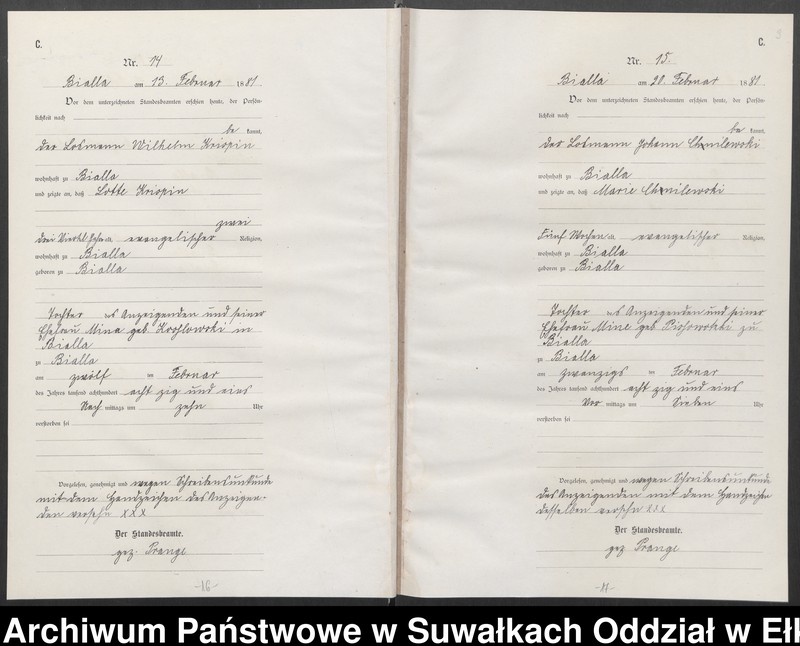 C.
Nr. 14
Bialla am 13. Februar 1881
Vor dem unterzeichneten Standesbeamten erschien heute, der Persön-
lichkeit nach
be kannt,
der Losmann Wilhelm Krispin
wohnhaft zu Bialla
und zeigte an, daß Lotte Krispin
zwei
drei Viertel Jahr a. evangelischer Religion,
wohnhaft zu Bialla
geboren zu Bialla
Tochter es Anzeigenden und seiner
Ehefrau Mina geb. in
Bialla
zu Bialla
am zwölf im Februar
des Jahres tausend achthundert acht zig und eins
Nach mittags um zehn Uhr
verstorben sei
Vorgelesen, genehmigt und wegen Schreibensunkunde
mit dem Handzeichen des Anzeigen-
den versehn xxx
Der Standesbeamte.
gez. Prange
-16-
C.
3
Nr. 15.
Bialla am 20. Februar 1881
Vor dem unterzeichneten Standesbeamten erschien heute, der Persön-
lichkeit nach
be kannt,
der Losmann Johann Chmilewski
wohnhaft zu Bialla
und zeigte an, daß Marie Chmilewski
Fünf Wochen a. evangelischer Religion,
wohnhaft zu Bialla
geboren zu Bialla
Tochter es Anzeigenden und seiner
Ehefrau Mine geb. zu
Bialla
zu Bialla
am zwanzigs im Februar
des Jahres tausend achthundert acht zig und eins
Vor mittags um Sieben Uhr
verstorben sei
Vorgelesen, genehmigt und wegen Schreibensunkunde
des Anzeigenden mit dem Handzeichen
desselben versehn xxx
Der Standesbeamte.
gez Prange
Archiwum Państwowe w Suwałkach Oddział w Ełk